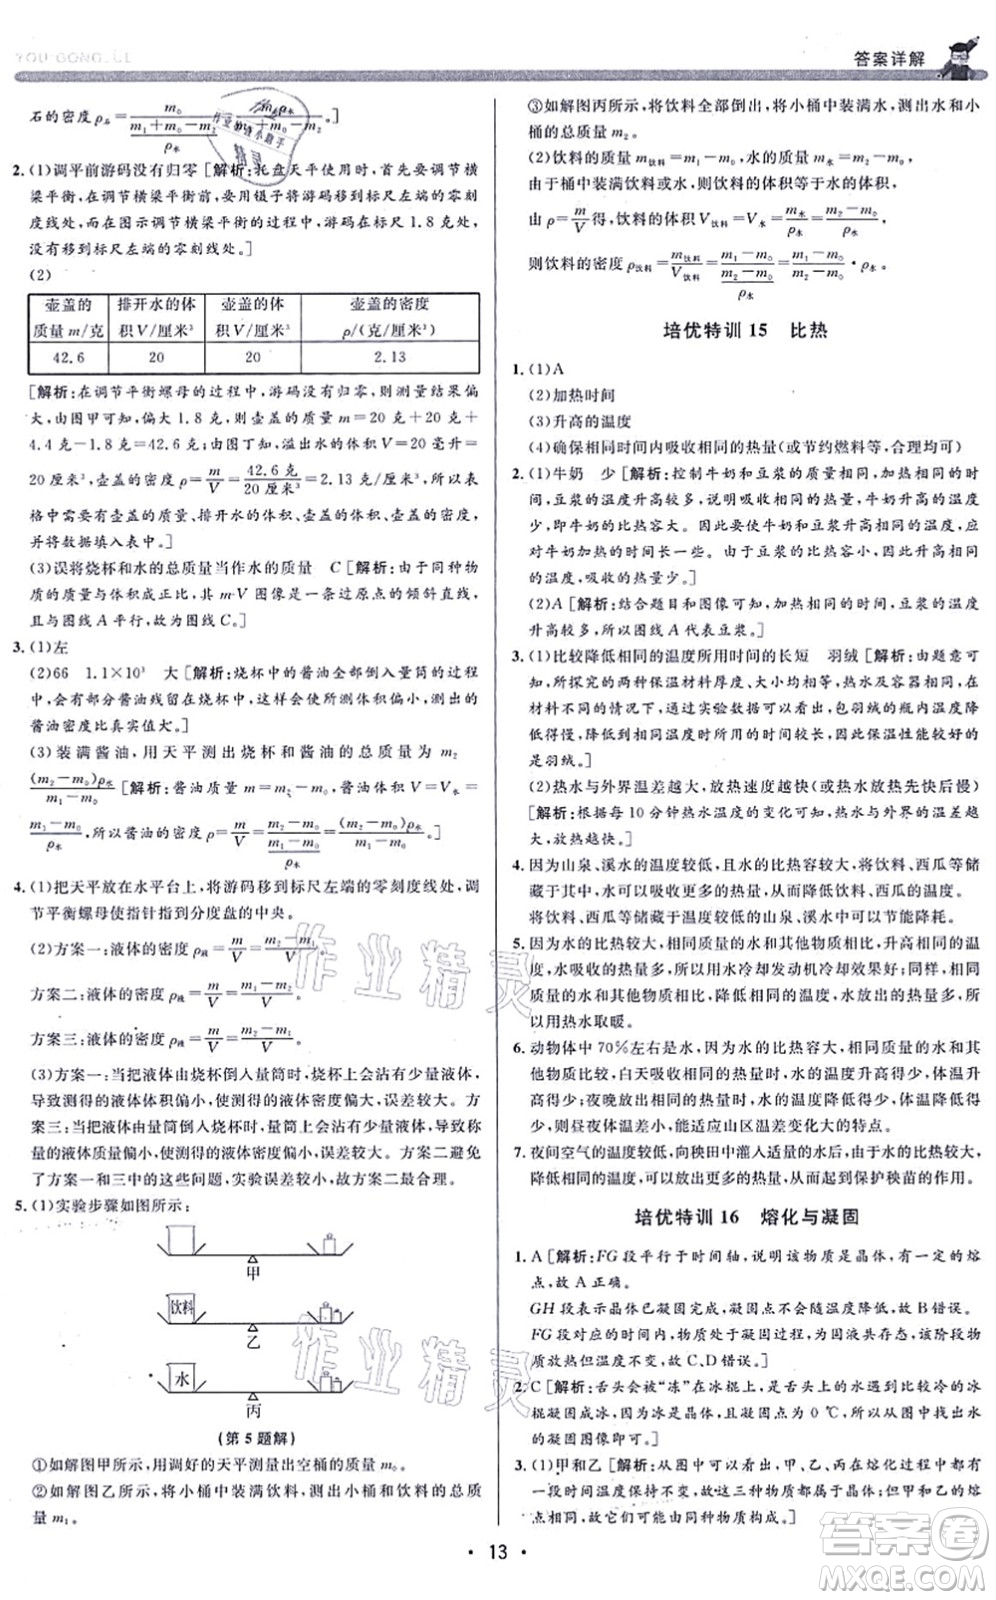 YOU GONG LUE
答案详解
石的密度 ρ石 = m0/(m1+m0−m2)/ρ水 = m0ρ水/(m1+m0−m2)。]
2. (1)调平前游码没有归零 [解析:托盘天平使用时,首先要调节横
梁平衡,在调节横梁平衡前,要用镊子将游码移到标尺左端的零刻
度线处,而在图示调节横梁平衡的过程中,游码在标尺 1.8 克处,
没有移到标尺左端的零刻线处。]
(2)
壶盖的质量 m/克 排开水的体积 V/厘米³ 壶盖的体积 V/厘米³ 壶盖的密度 ρ/(克/厘米³)
42.6 20 20 2.13
[解析:在调节平衡螺母的过程中,游码没有归零,则测量结果偏
大,由图甲可知,偏大 1.8 克,故壶盖的质量 m=20 克+20 克+
4.4 克−1.8克=42.6 克;由图丁知,溢出水的体积 V=20 毫升=
20 厘米³,壶盖的密度 ρ=m/V=42.6 克/20 厘米³=2.13 克/厘米³,以此在表
格中填写壶盖的质量、排开水的体积、壶盖的体积、壶盖的密度,
并填入表中。]
(3)误将烧杯和水的总质量当作水的质量 C[解析:物体的质
量与体积成正比,其 m-V 图像是一条过原点的倾斜直线,
且与图线 A 平行,故为图线 C。]
3. (1)左
(2)66 1.1×10³ 大[解析:烧杯中的酱油全部倒入量筒的过程
中,有部分酱油残留在烧杯中,会使所测体积偏小,测出的
酱油密度比真实值大。]
(3)装满酱油,用天平测出烧杯和酱油的总质量为 m2
(m2−m0)ρ水/(m1−m0) [解析:酱油的质量 m=m2−m0,酱油的体积 V=V水=
(m1−m0)/ρ水,所以酱油的密度 ρ=m/V=(m2−m0)/((m1−m0)/ρ水)=(m2−m0)ρ水/(m1−m0)。]
4. (1)把天平放在水平台上,将游码移到标尺左端的零刻度线处,调
节平衡螺母使指针指到分度盘的中央。
(2)方案一:液体的密度 ρ液=m/V=(m2−m1)/V。
方案二:液体的密度 ρ液=m/V=(m1−m2)/V。
方案三:液体的密度 ρ液=m/V=(m2−m1)/V。
(3)方案一:当把液体由烧杯倒入量筒时,烧杯会沾有少量液体,
导致测得的液体体积偏小,测得的液体密度偏大,误差较大。方
案三:当把液体由量筒倒入烧杯时,量筒会沾有少量液体,导致称
量的液体质量偏小,测得的液体密度偏小,误差较大。方案二避免
了方案一和三中的这些问题,实验误差较小,故方案二最合理。
5. (1)实验步骤如图所示:
甲
饮料
乙
水
丙
(第 5 题解)
①如解图甲所示,用调好的天平测量出空桶的质量 m0。
②如解图乙所示,将小桶中装满饮料,测出小桶和饮料的总质
量 m1。
③如解图丙所示,将饮料全部倒出,将小桶中装满水,测出小
桶的总质量 m2。
(2)饮料的质量 m饮料=m1−m0,水的质量 m水=m2−m0,
由于桶中装满饮料或水,所以饮料的体积等于水的体积,
由 ρ=m/V得,饮料的体积 V饮料=V水=m水/ρ水=(m2−m0)/ρ水,
则饮料的密度 ρ饮料=m饮料/V饮料=(m1−m0)/((m2−m0)/ρ水)=(m1−m0)/(m2−m0)·ρ水。
培优特训 15 比热
1. (1)A
(2)加热时间
(3)升高的温度
(4)确保相同时间内吸收相同的热量(或节约燃料等,合理均可)
2. (1)牛奶 少[解析:控制牛奶和豆浆的质量相同,加热相同的时
间,豆浆的温度升高较多,说明吸收相同的热量,牛奶升高的温度
少,即牛奶的比热容大。因此要使牛奶和豆浆升高相同的温度,应
对牛奶加热的时间更长一些。由于豆浆的比热容小,故升高相同
的温度,吸收的热量少。]
(2)A [解析:结合题目和图像可知,加热相同的时间,豆浆的温度
升高得多,所以图线 A 代表豆浆。]
3. (1)比较降低相同的温度所用时间的长短 羽绒[解析:由题意可
知,实验中的两种保温材料厚度、大小均相同,水及容器相同,只有
材料种类不同。再结合实验数据可以看出,包羽绒的瓶内水温度
降低得慢,所用的时间长,因此,两种材料中,保温效果较好的应该
是羽绒。]
(2)热水与外界温差越大,放热速度越快(或热水放热先快后慢)
[解析:由实验知,每 10 分钟热水温度的变化可知,水与外界的温差越大,
放热越快。]
4. 因为山泉、溪水的温度较低,且水的比热容较大,将饮料、西瓜等储
藏于其中,可以吸收更多的热量,以降低饮料、西瓜的温度。
将饮料、西瓜等储藏于温度较低的山泉、溪水中可节约能源、降耗。
5. 因为水的比热容较大,相同质量的水和其他物质相比,升高相同的
温度,水吸收的热量多,所以用水来冷却发动机冷却效果好;同样,相同
质量的水和其他物质相比,降低相同的温度,水放出的热量多,所
以用热水取暖。
6. 动物体中 70%左右是水,因为水的比热容较大,与相同质量的其他
物质比较,白天吸收相同的热量时,水升高的温度小,体温升
高小;夜晚放出相同的热量时,水降低的温度小,体温降低
小,则昼夜体温差小,能适应山区温差变化大的特点。
7. 夜间空气的温度较低,向秧田中灌入适量的水,水的比热容较大,
降温时能放出较多的热量,水降低的温度小,从而起到保护秧苗的作用。
培优特训 16 熔化与凝固
1. A[解析:FG 段平行于时间轴,说明该物质是晶体,有一定的熔
点,故 A 正确。
GH 段表示晶体已凝固完成,凝固点不会随温度变化,故 B 错误。
FG 段对应的时间内,物质处于凝固过程中,为固液共存态,该
物质放热但温度不变,故 C、D 错误。]
2. C[解析:舌头会被“冻”在冰棍上,是舌头上的水遇到很冷的冰
棍凝固成冰,因为冰是晶体,且其凝固点为 0 ℃,所以,只要找出水
的凝固图像即可。]
3. (1)甲和乙[解析:由图像可以看出,甲、乙、丙在熔化过程中有
一段时间温度保持不变,故这三种物质都是晶体,但甲和乙的
熔点相同,故甲和乙可能是同种物质。]
13
作业精灵
作业精灵
答案圈
MXQE.COM